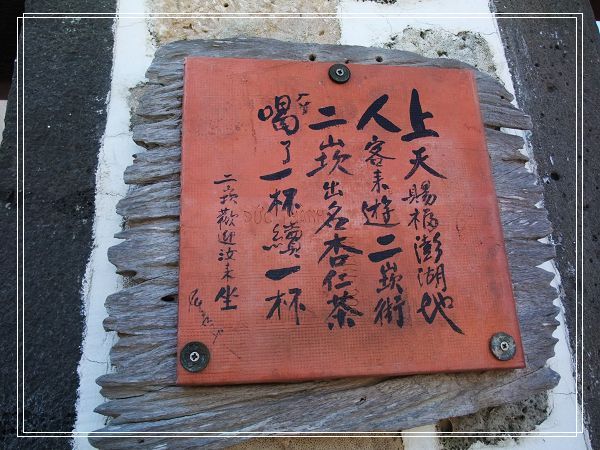 上天賜福澎湖地
人客來遊二崁街
二崁出名杏仁茶
喝了一杯續一杯
二崁歡迎汝來坐